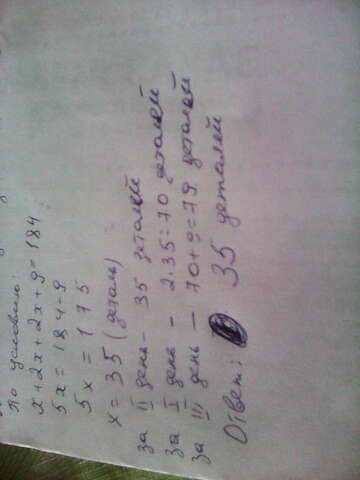 По условию:
x+2x+2x+9=184
5x=184-9
5x=175
x=35 (деталь)
за II день - 35 деталей
за I день - 2·35=70 деталей
за III день - 70+9=79 деталей
Ответ: 35 деталей